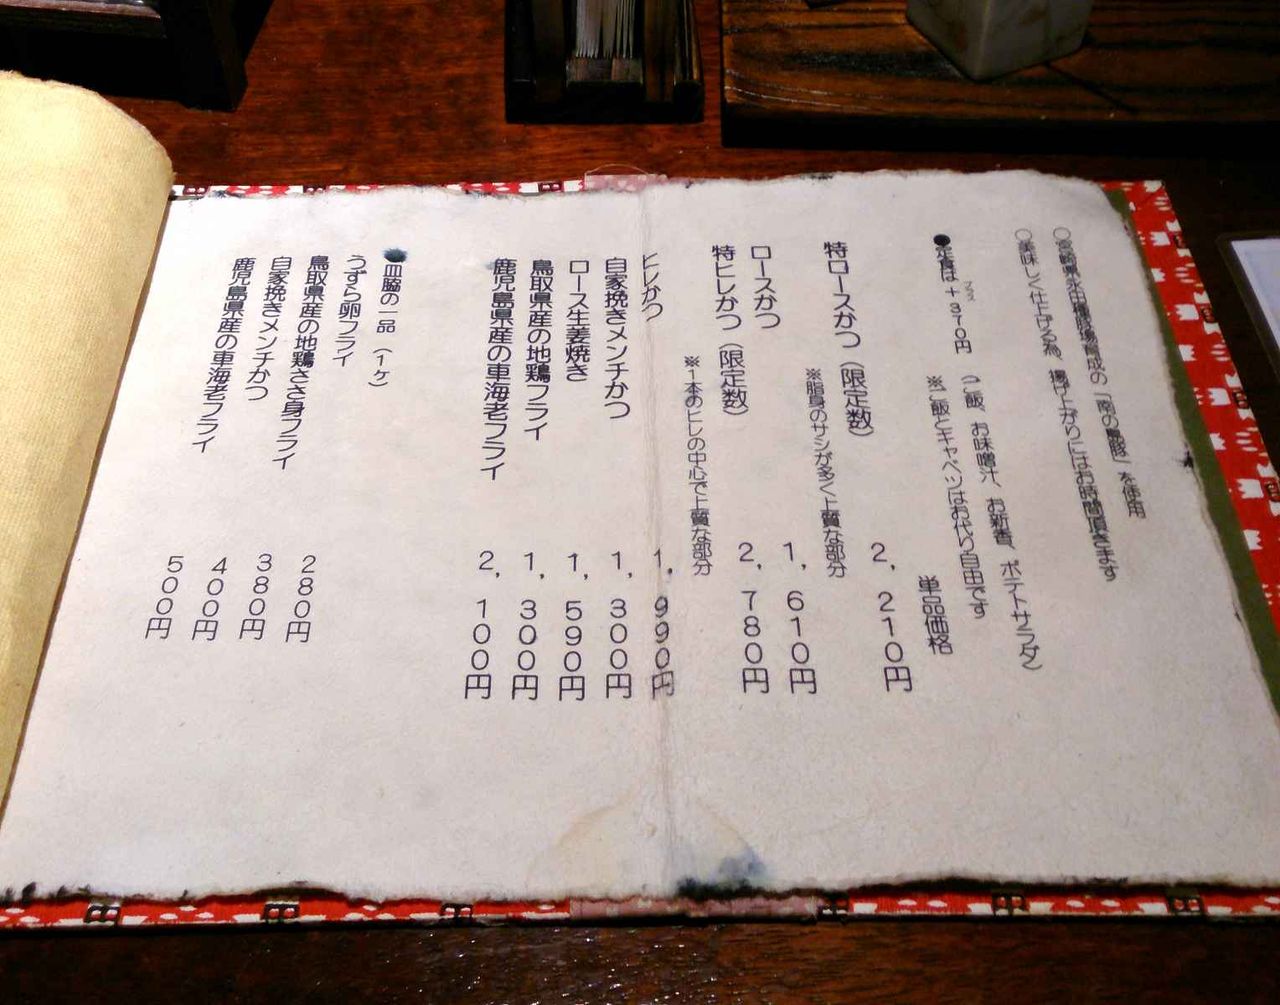 ○宮崎県永田種豚場育成の「南の島豚」を使用
○美味しく仕上げる為、揚げ上がりにはお時間頂きます
●定食は+370円 (ご飯、お味噌汁、お新香、ポテトサラダ)
※ご飯とキャベツはお代り自由です
単品価格
特ロースかつ(限定数) 2,210円
※脂身のサシが多く上質な部分
ロースかつ 1,610円
特ヒレかつ(限定数) 2,780円
※1本のヒレの中心で上質な部分
ヒレかつ 1,990円
自家挽きメンチかつ 1,300円
ロース生姜焼き 1,590円
鳥取県産の地鶏フライ 1,300円
鹿児島県産の車海老フライ 2,100円
●皿脇の一品 (1ヶ)
うずら卵フライ 280円
鳥取県産の地鶏ささ身フライ 380円
自家挽きメンチかつ 400円
鹿児島県産の車海老フライ 500円